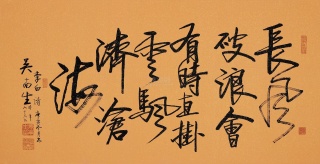 長風
破浪會
有時直掛
雲颿
濟滄
海
李白詩